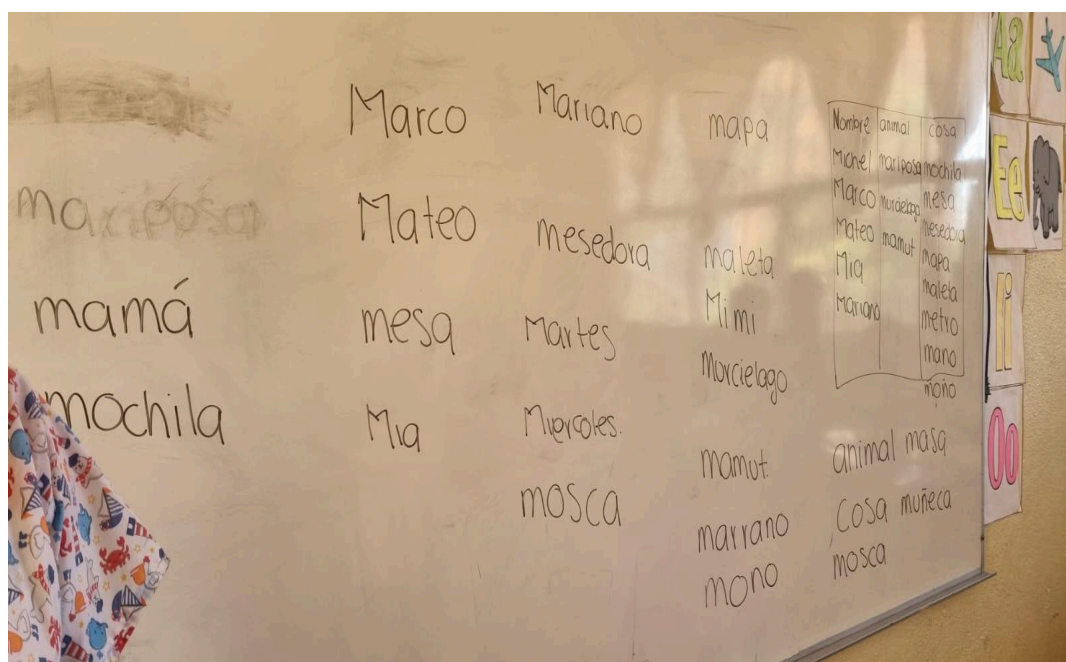 mariposa
mamá
mochila
Marco
Mateo
mesa
Mia
Mariano
mesedora
Martes
Miercoles.
mosca
mapa
maleta
Mimi
Murcielago
mamut.
marrano
mono
Nombre animal cosa
Michel mariposa mochila
Marco murcielago mesa
Mateo mamut mesedora
Mia mapa
Mariano maleta
metro
mano
moño
animal masa
cosa muñeca
mosca
Aa
Ee
Ii
Oo